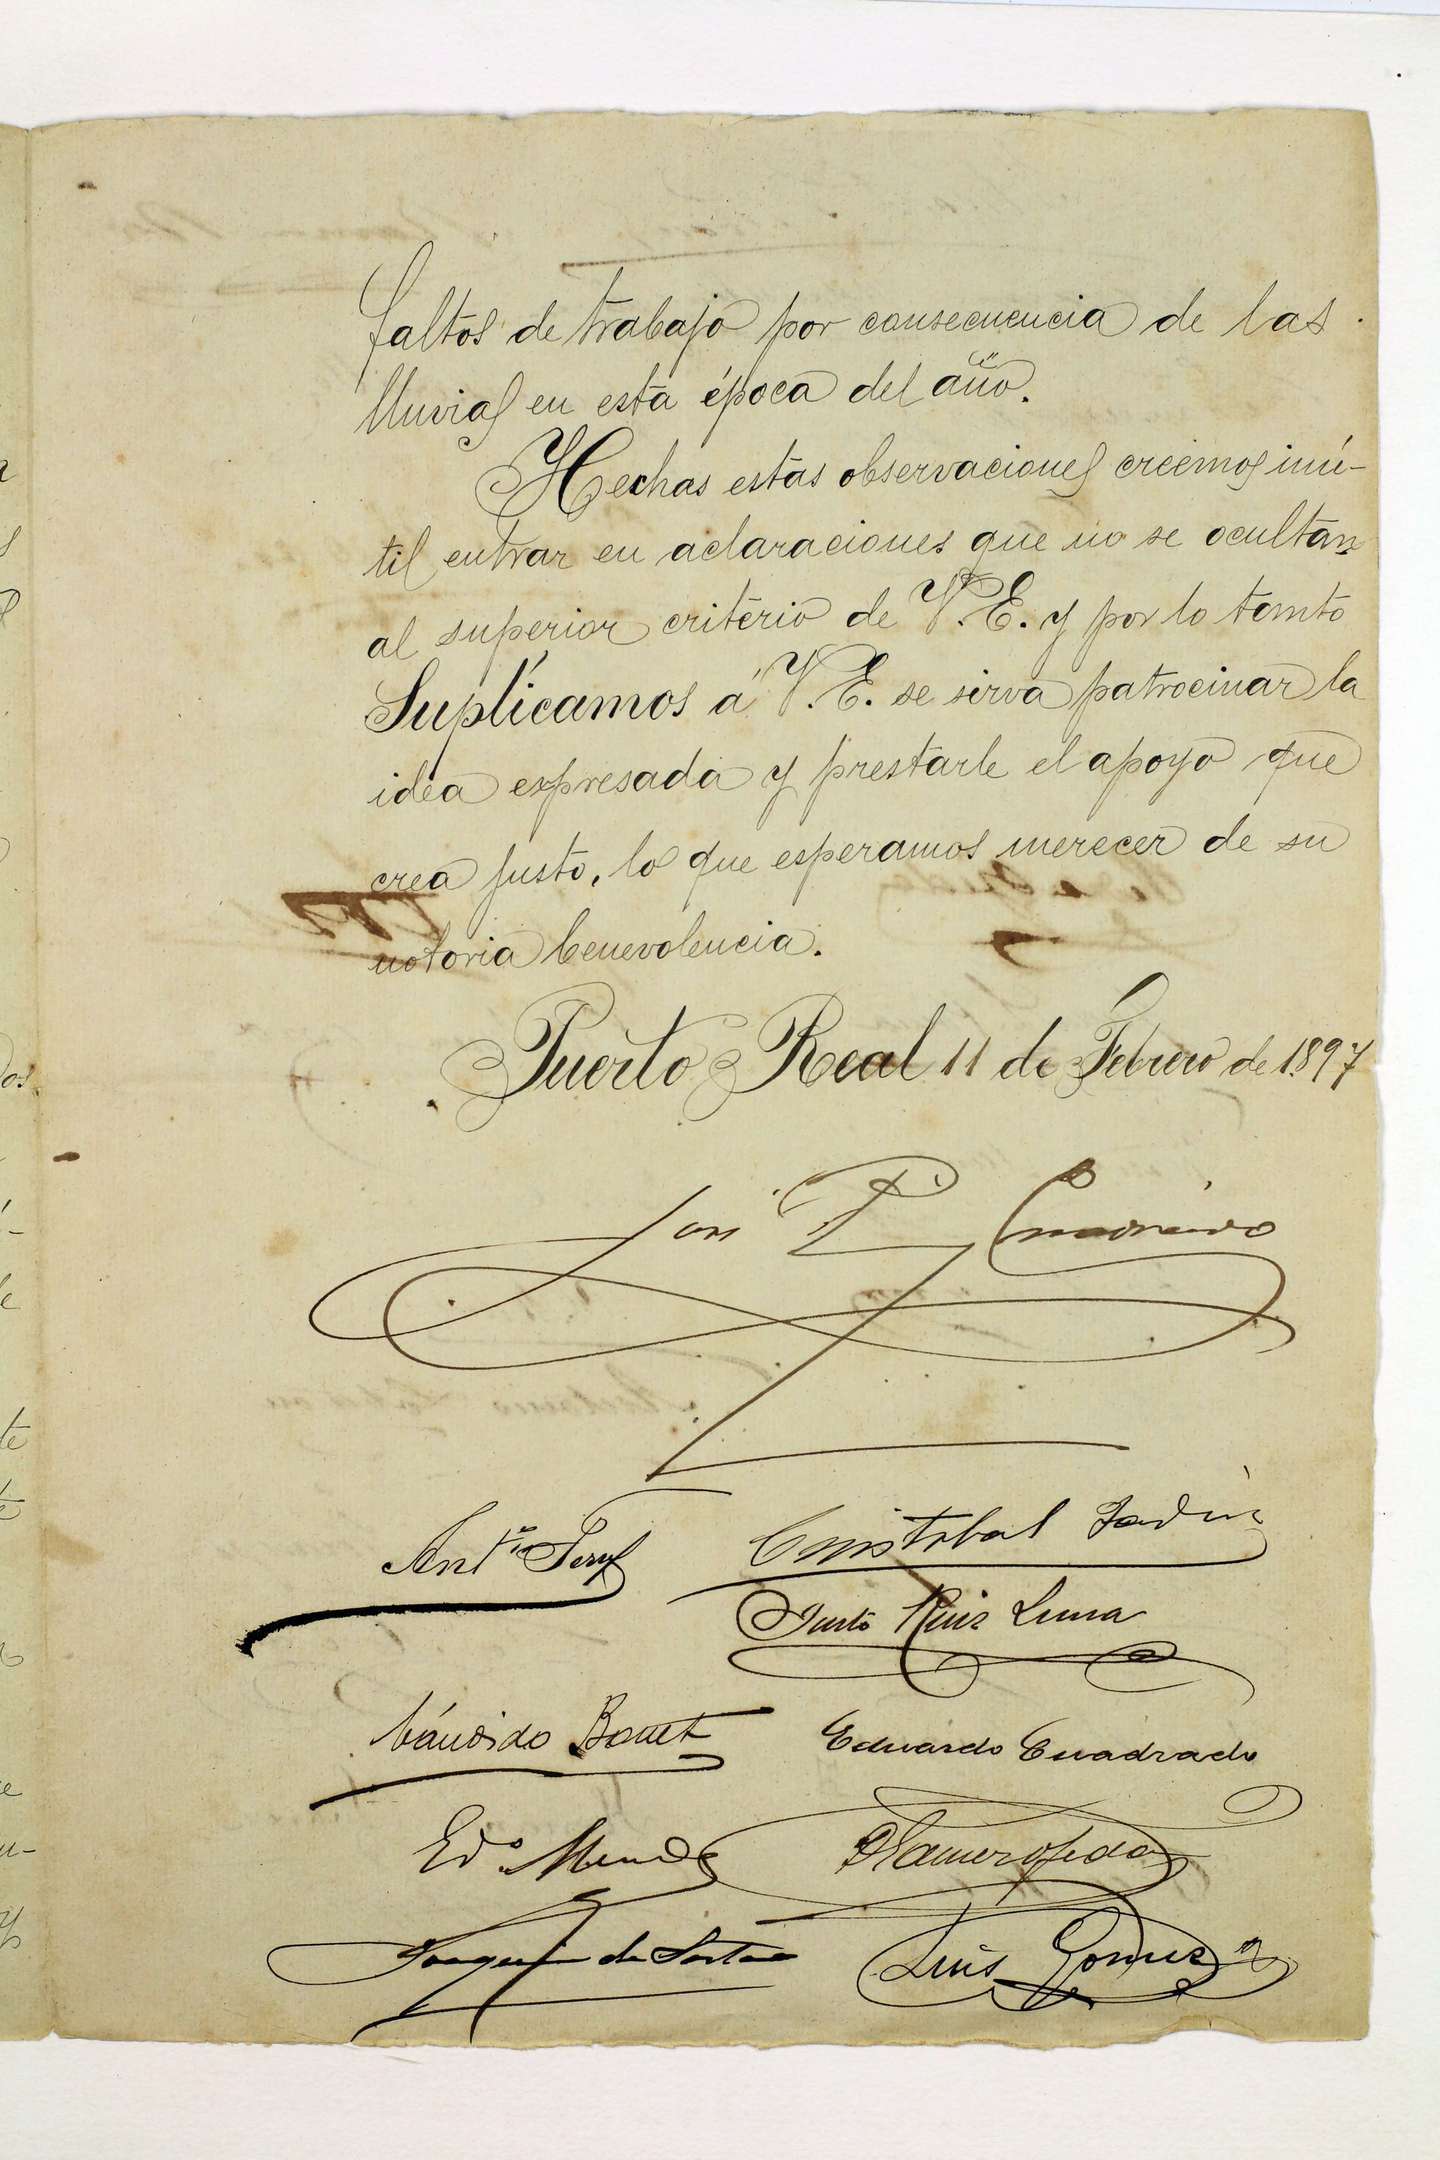 faltos de trabajo por consecuencia de las
lluvias en esta época del año.
Hechas estas observaciones creemos inú-
til entrar en aclaraciones que no se ocultan
al superior criterio de V. E. y por lo tanto
Suplicamos á V. E. se sirva patrocinar la
idea expresada y prestarle el apoyo que
crea justo, lo que esperamos merecer de su
notoria benevolencia.
Puerto Real 11 de Febrero de 1897
José
Antº Cristobal
Justo Ruiz Luna
Cándido Bonet Eduardo Cuadrado
Edº
Joaquin de Luis Gomez